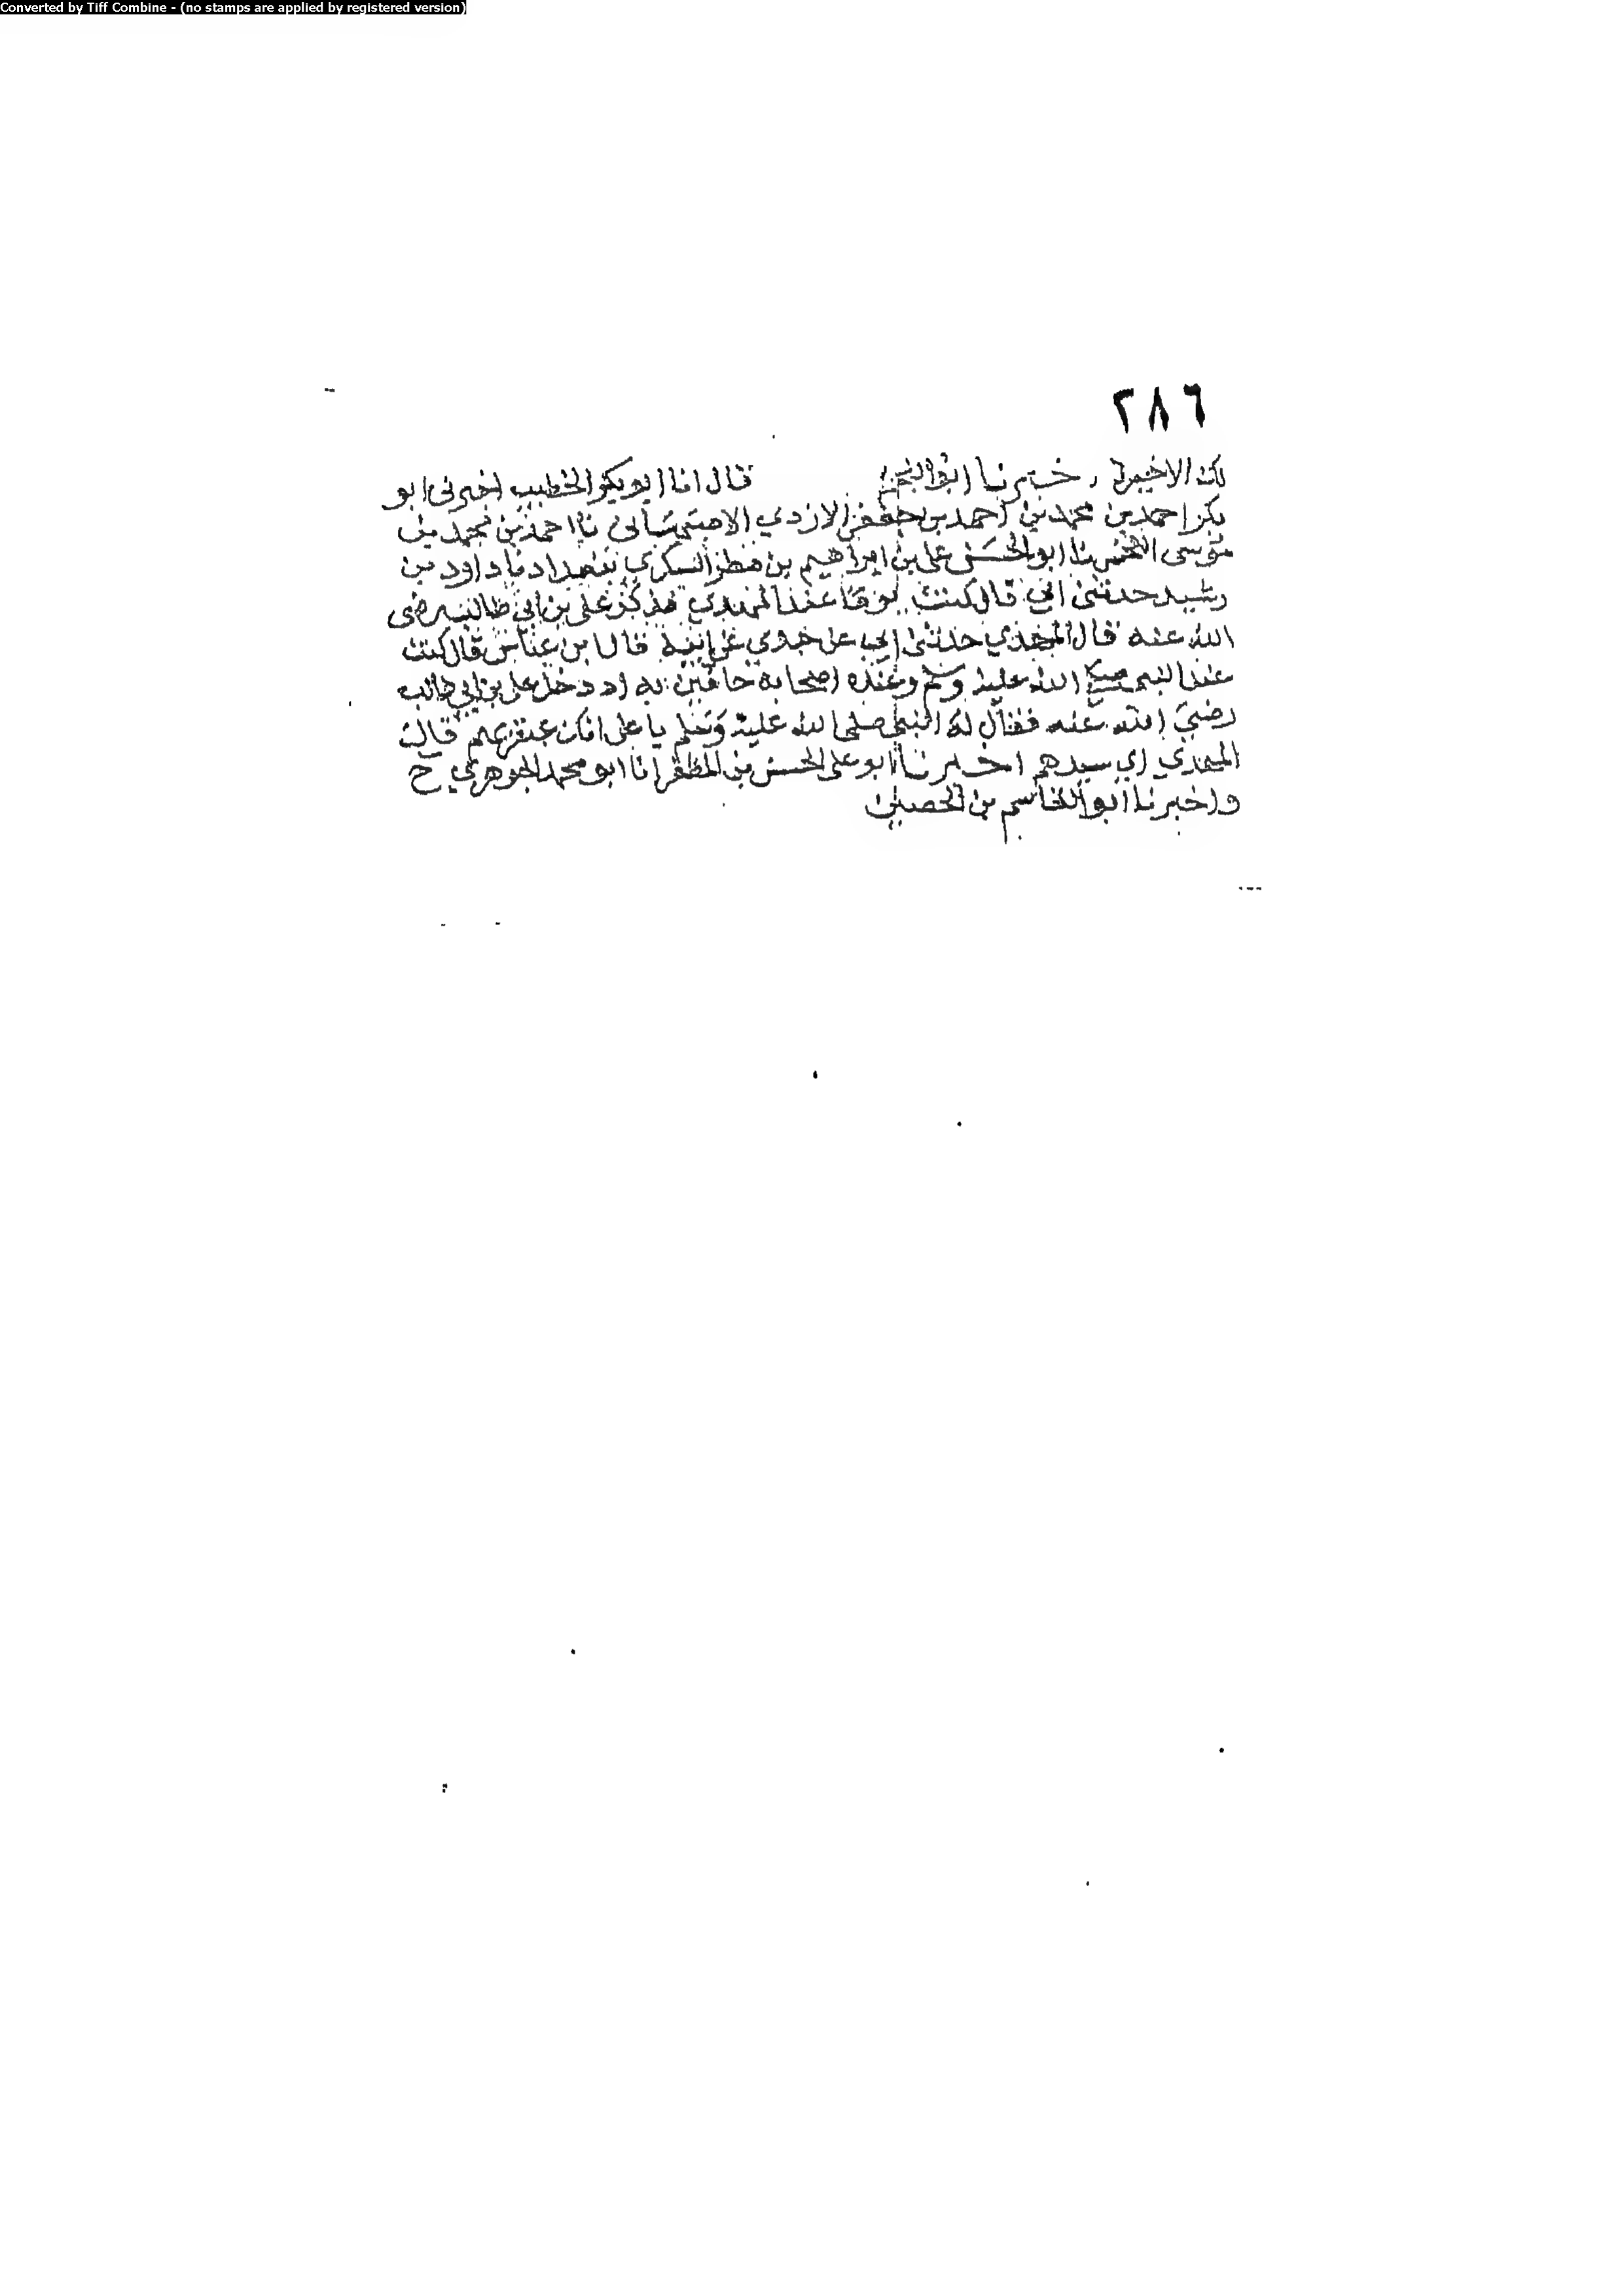 Converted by Tiff Combine - (no stamps are applied by registered version)
٢٨٦
لك الاخير اخبرنا ابو النجم قال انا ابو بكر الخطيب اخبرني ابو
بكر احمد بن محمد بن احمد بن جعفر الازدي نا احمد بن محمد بن
موسى نا ابو الحسن علي بن ابراهيم بن مطر السكري ببغداد نا داود بن
رشيد حدثني ابي قال كنت يوما عند المهدي فذكر علي بن ابي طالب رضى
الله عنه قال المهدي حدثني ابي عن جدي عن ابيه قال ابن عباس قال كنت
عند النبي صلى الله عليه وسلم وعنده اصحابه حافين به اذ دخل علي بن ابي طالب
رضي الله عنه فقال له النبي صلى الله عليه وسلم يا علي انك عبقريهم قال
المهدي اي سيدهم اخبرنا ابو علي الحسن بن المظفر انا ابو محمد الجوهري ح
واخبرنا ابو القاسم بن الحصين